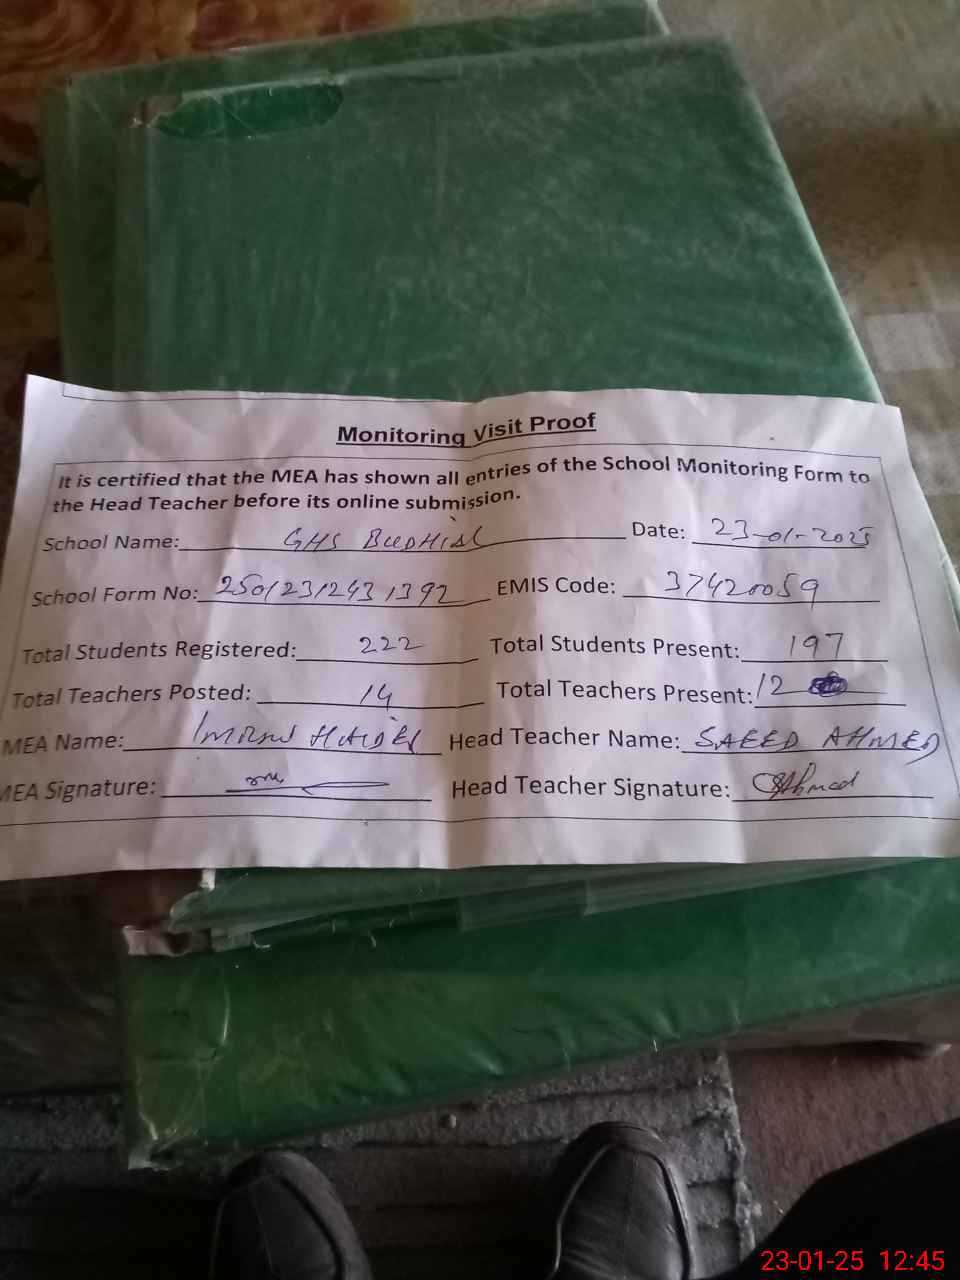 Monitoring Visit Proof
It is certified that the MEA has shown all entries of the School Monitoring Form to
the Head Teacher before its online submission.
School Name: GHS BUDHIAL Date: 23-01-2025
School Form No: 25012312431392 EMIS Code: 37420059
Total Students Registered: 222 Total Students Present: 197
Total Teachers Posted: 14 Total Teachers Present: 12
MEA Name: IMRAN HAIDER Head Teacher Name: SAEED AHMED
MEA Signature: Head Teacher Signature: SAhmad
23-01-25 12:45